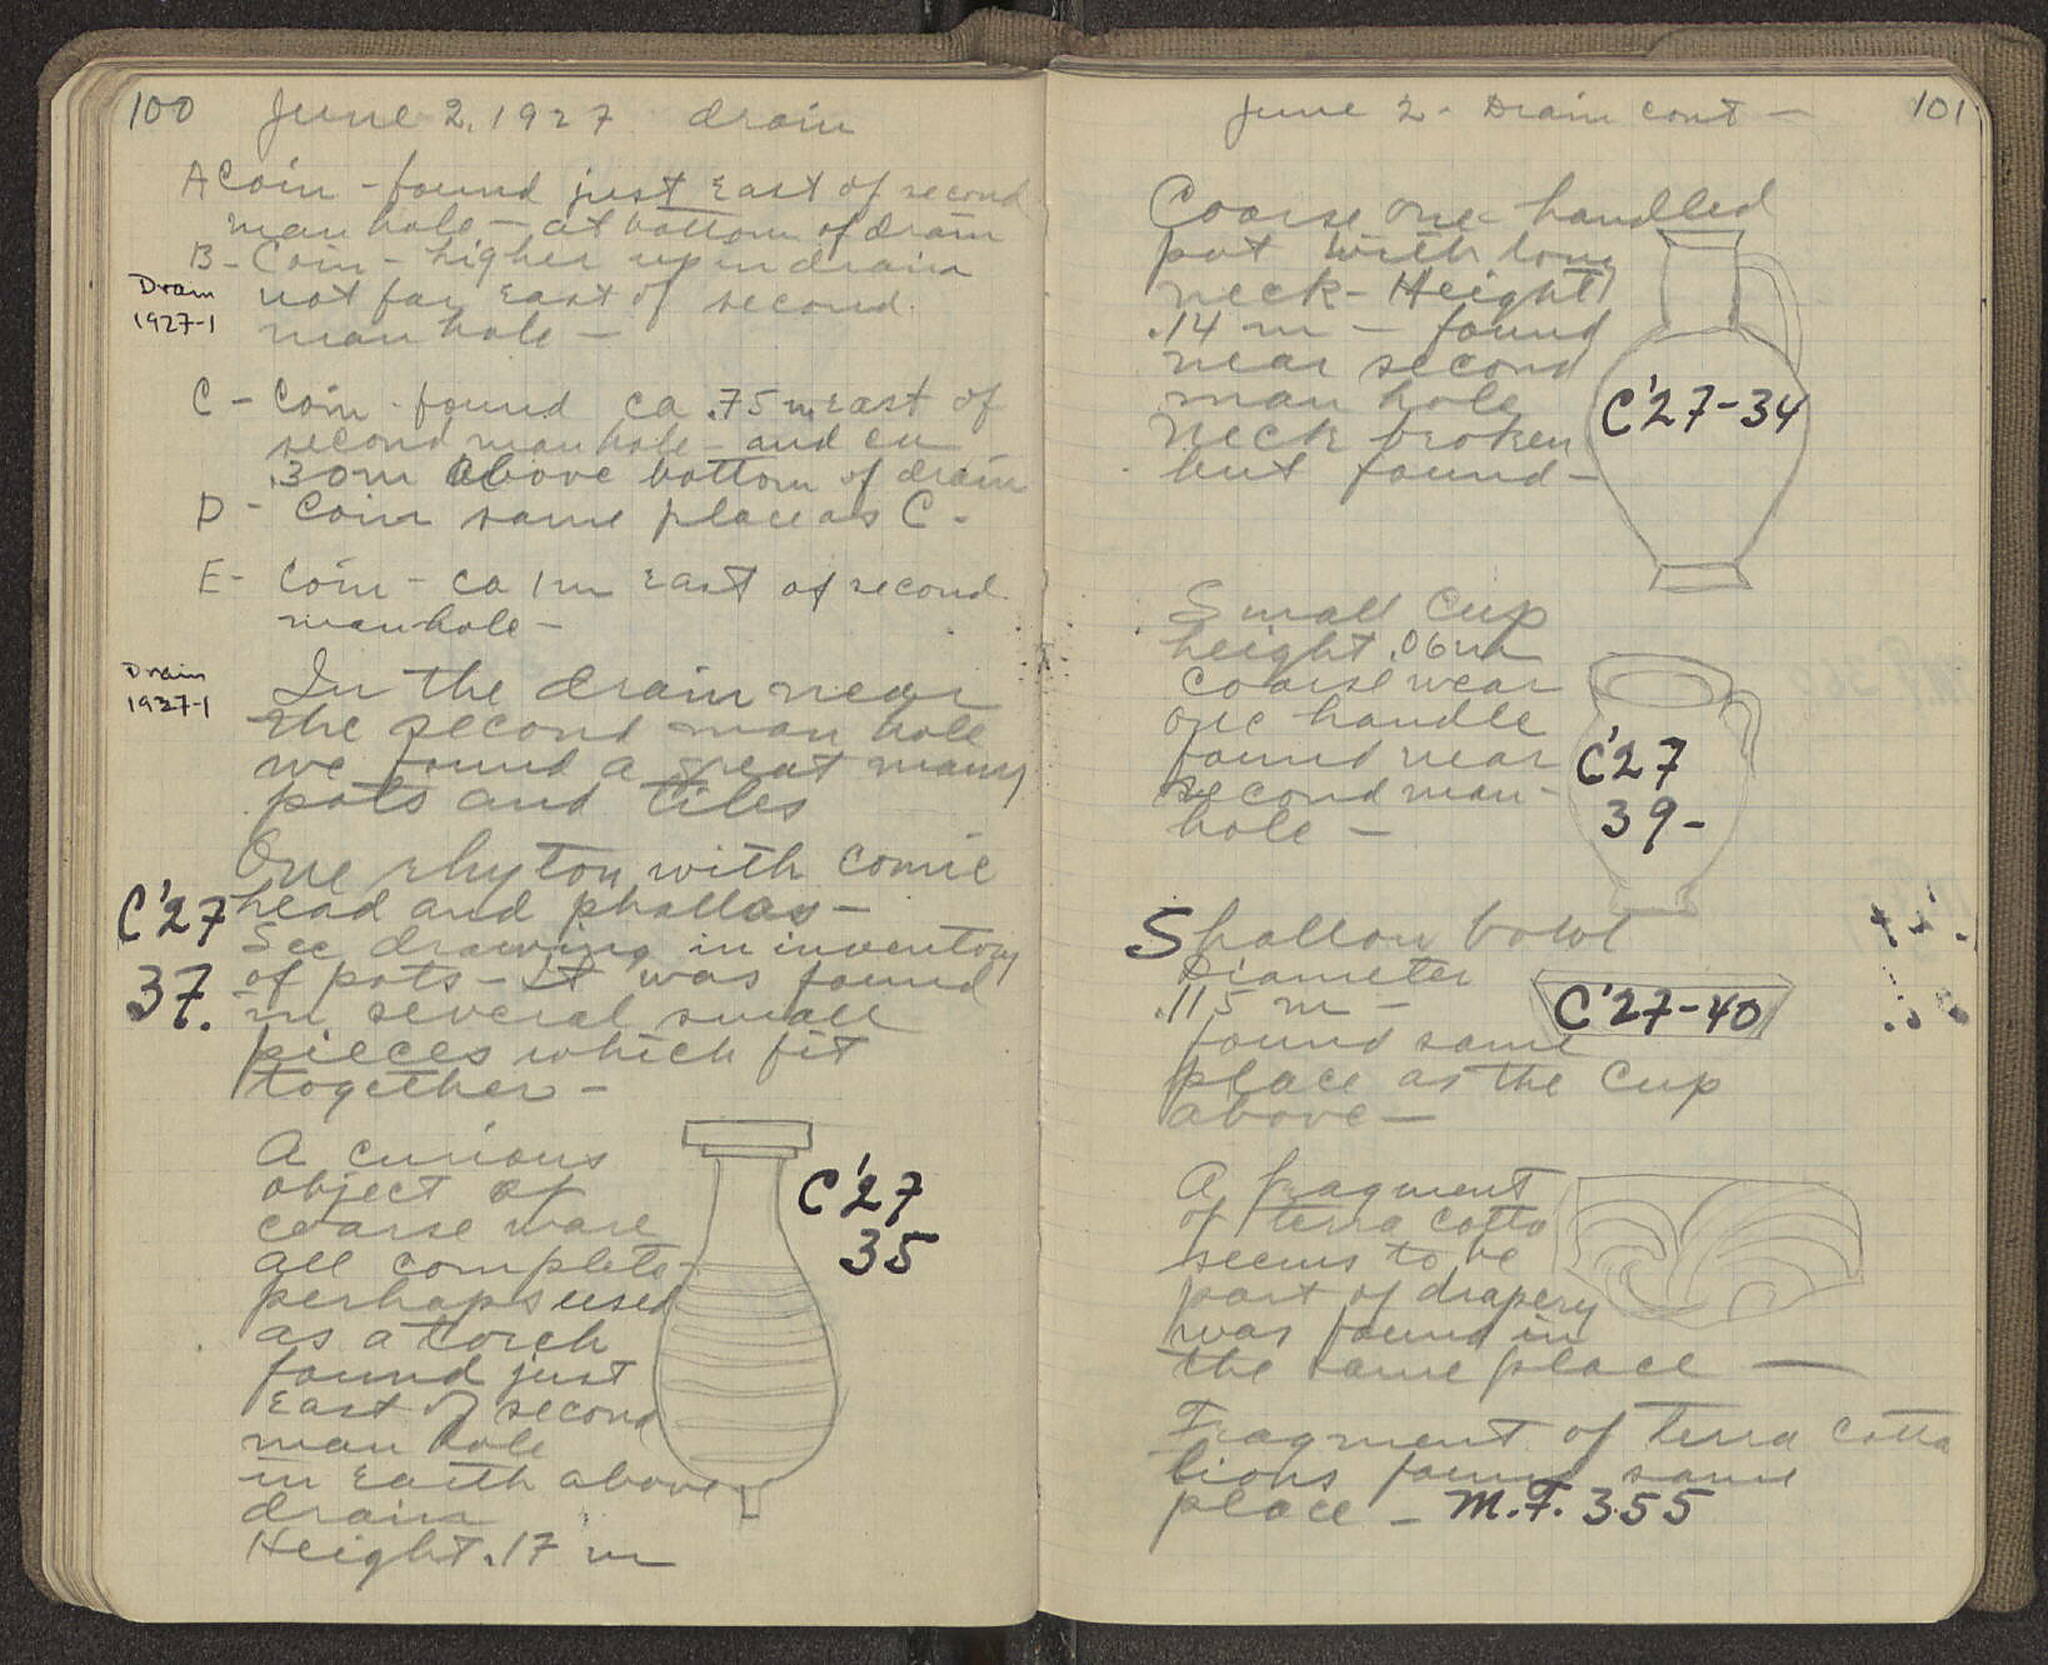 100 June 2, 1927 drain
A Coin - found just East of second
man hole - at bottom of drain
B - Coin - higher up in drain
Drain
1927-1
not far East of second
man hole -
C - Coin - found ca .75 m East of
second man hole - and ca
.30 m above bottom of drain
D - Coin same place as C -
E - Coin - ca 1 m East of second
manhole -
Drain
1927-1
In the drain near
the second man hole
we found a great many
pots and tiles
One rhyton with comic
head and phallos -
C'27
37.
See drawing in inventory
of pots - It was found
in several small
pieces which fit
together -
A curious
object of
coarse ware
all complete -
perhaps used
as a torch
found just
East of second
man hole
in earth above
drain
Height .17 m
C'27
35
June 2 - Drain cont - 101
Coarse one handled
pot with long
neck - Height
.14 m - found
near second
man hole
Neck broken
but found -
C'27-34
Small Cup
height .06 m
coarse wear
one handle
found near
second man-
hole -
C'27
39-
Shallow bowl
Diameter
.115 m -
found same
place as the Cup
above -
C'27-40
A fragment
of terra cotta
seems to be
part of drapery
was found in
the same place -
Fragment of terra cotta
lions found same
place - M.F. 355